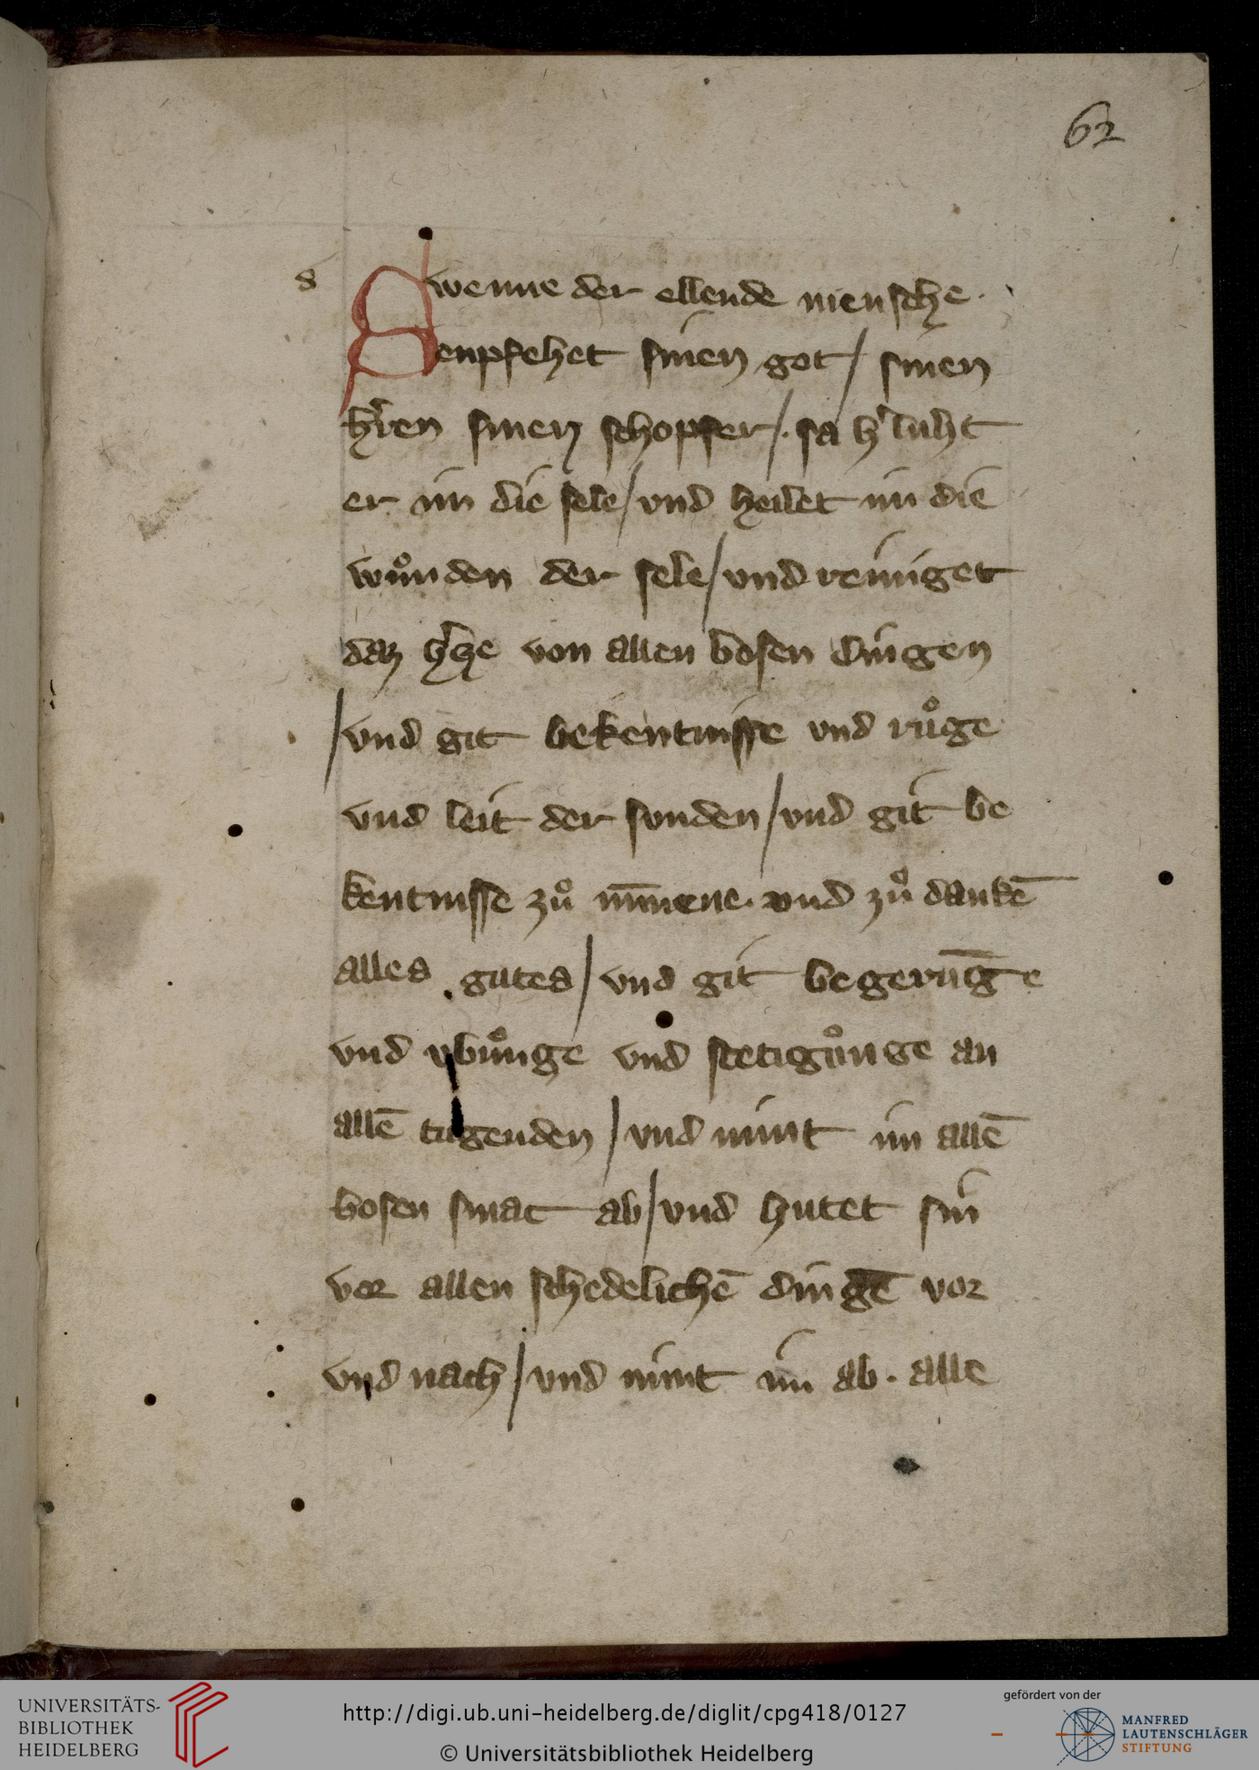 62
s
Swenne der ellende mensche.
enpfehet sinen got / sinen
h'ren sinen schopfer /. sa h' luht
er im die sele / vnd heilet im die
wůnden der sele / vnd reiniget
daz h'ze von allen bosen dingen
/ vnd git bekentnisse vnd růge
vnd leit der sunden / vnd git be
kentnisse zů vnd zů dankē
alles gutes / vnd git begerūge
vnd vbůnge vnd stetigůnge an
allē tugenden / vnd nimt im allē
bosen smac ab / vnd hutet sin
vor allen schedelichē dingē vor
vnd nach / vnd nimt im ab. alle
UNIVERSITÄTS-
BIBLIOTHEK
HEIDELBERG
http://digi.ub.uni-heidelberg.de/diglit/cpg418/0127
© Universitätsbibliothek Heidelberg
gefördert von der
MANFRED
LAUTENSCHLÄGER
STIFTUNG